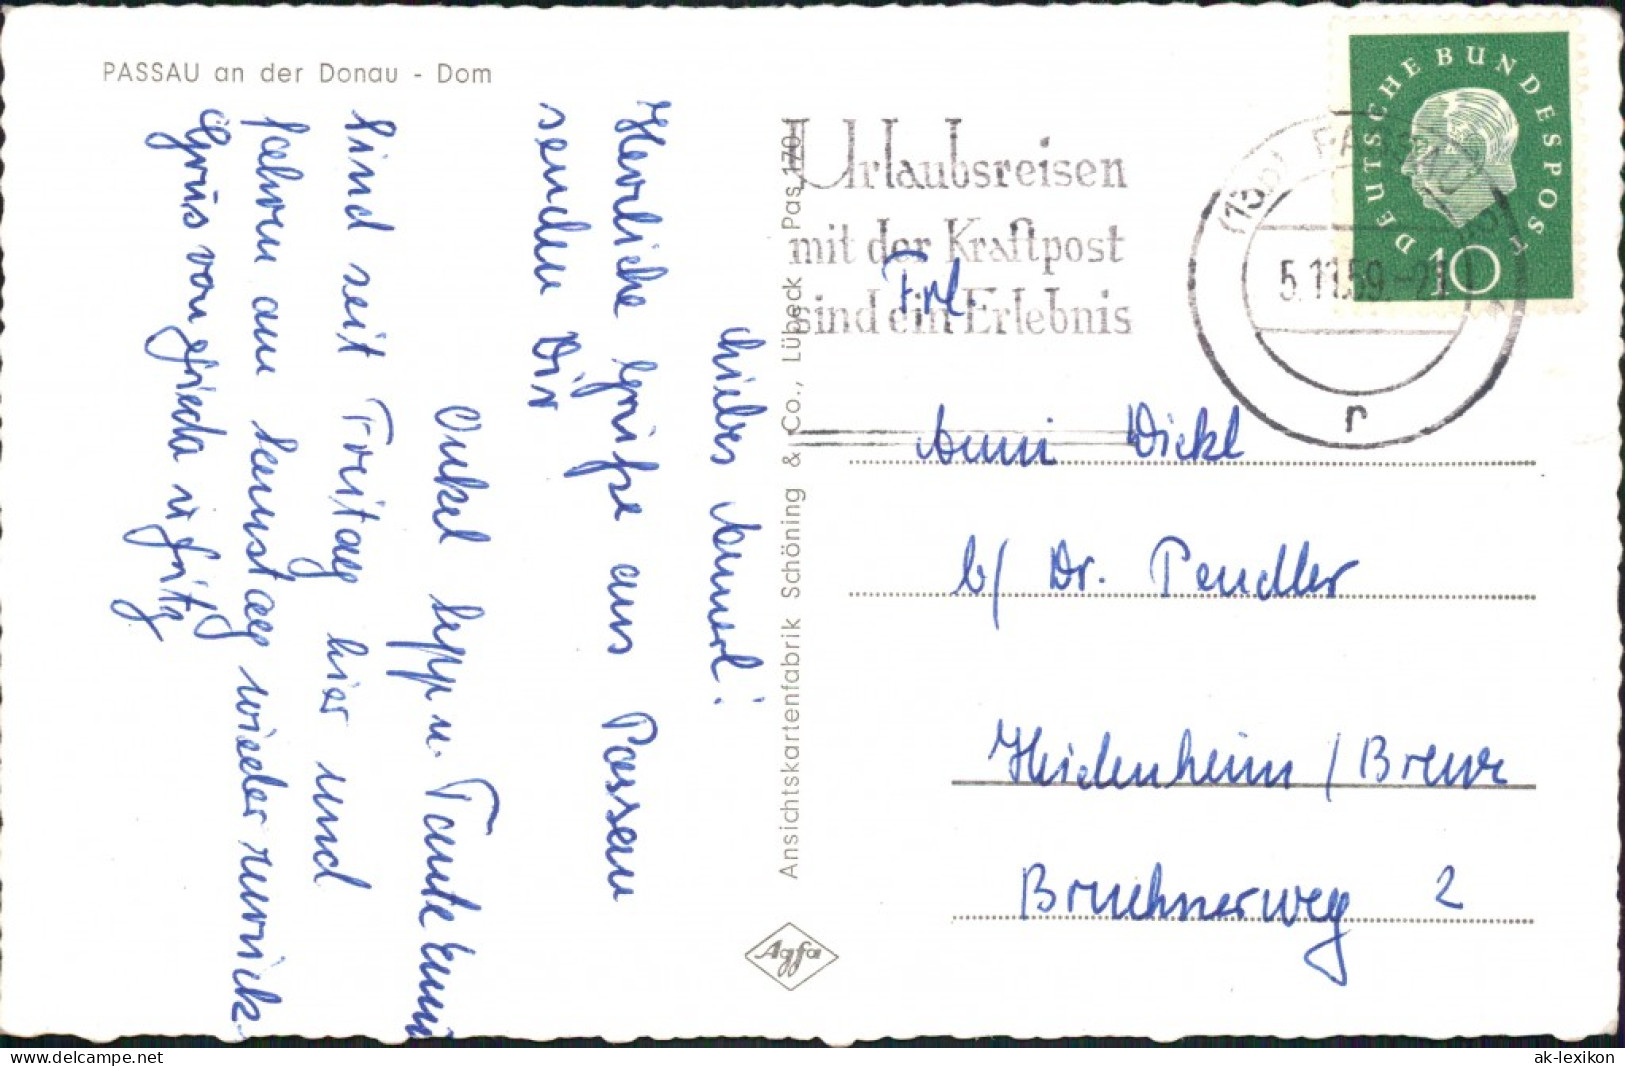 PASSAU an der Donau - Dom
Liebes Annerl!
Herzliche Grüße aus Passau
senden Dir
Onkel Sepp u. Tante Emmi
Sind seit Freitag hier und
fahren am Samstag wieder zurück
Gruß von Frieda u. Fritz
Ansichtskartenfabrik Schöning & Co., Lübeck Pas 170
Agfa
Urlaubsreisen
mit der Kraftpost
sind ein Erlebnis
(13b) PASSAU 2
5.11.59.-21
r
DEUTSCHE BUNDESPOST
10
Frl.
Anni Dickl
b/ Dr. Pendler
Heidenheim / Brenz
Brucknerweg 2
www.delcampe.net
ak-lexikon